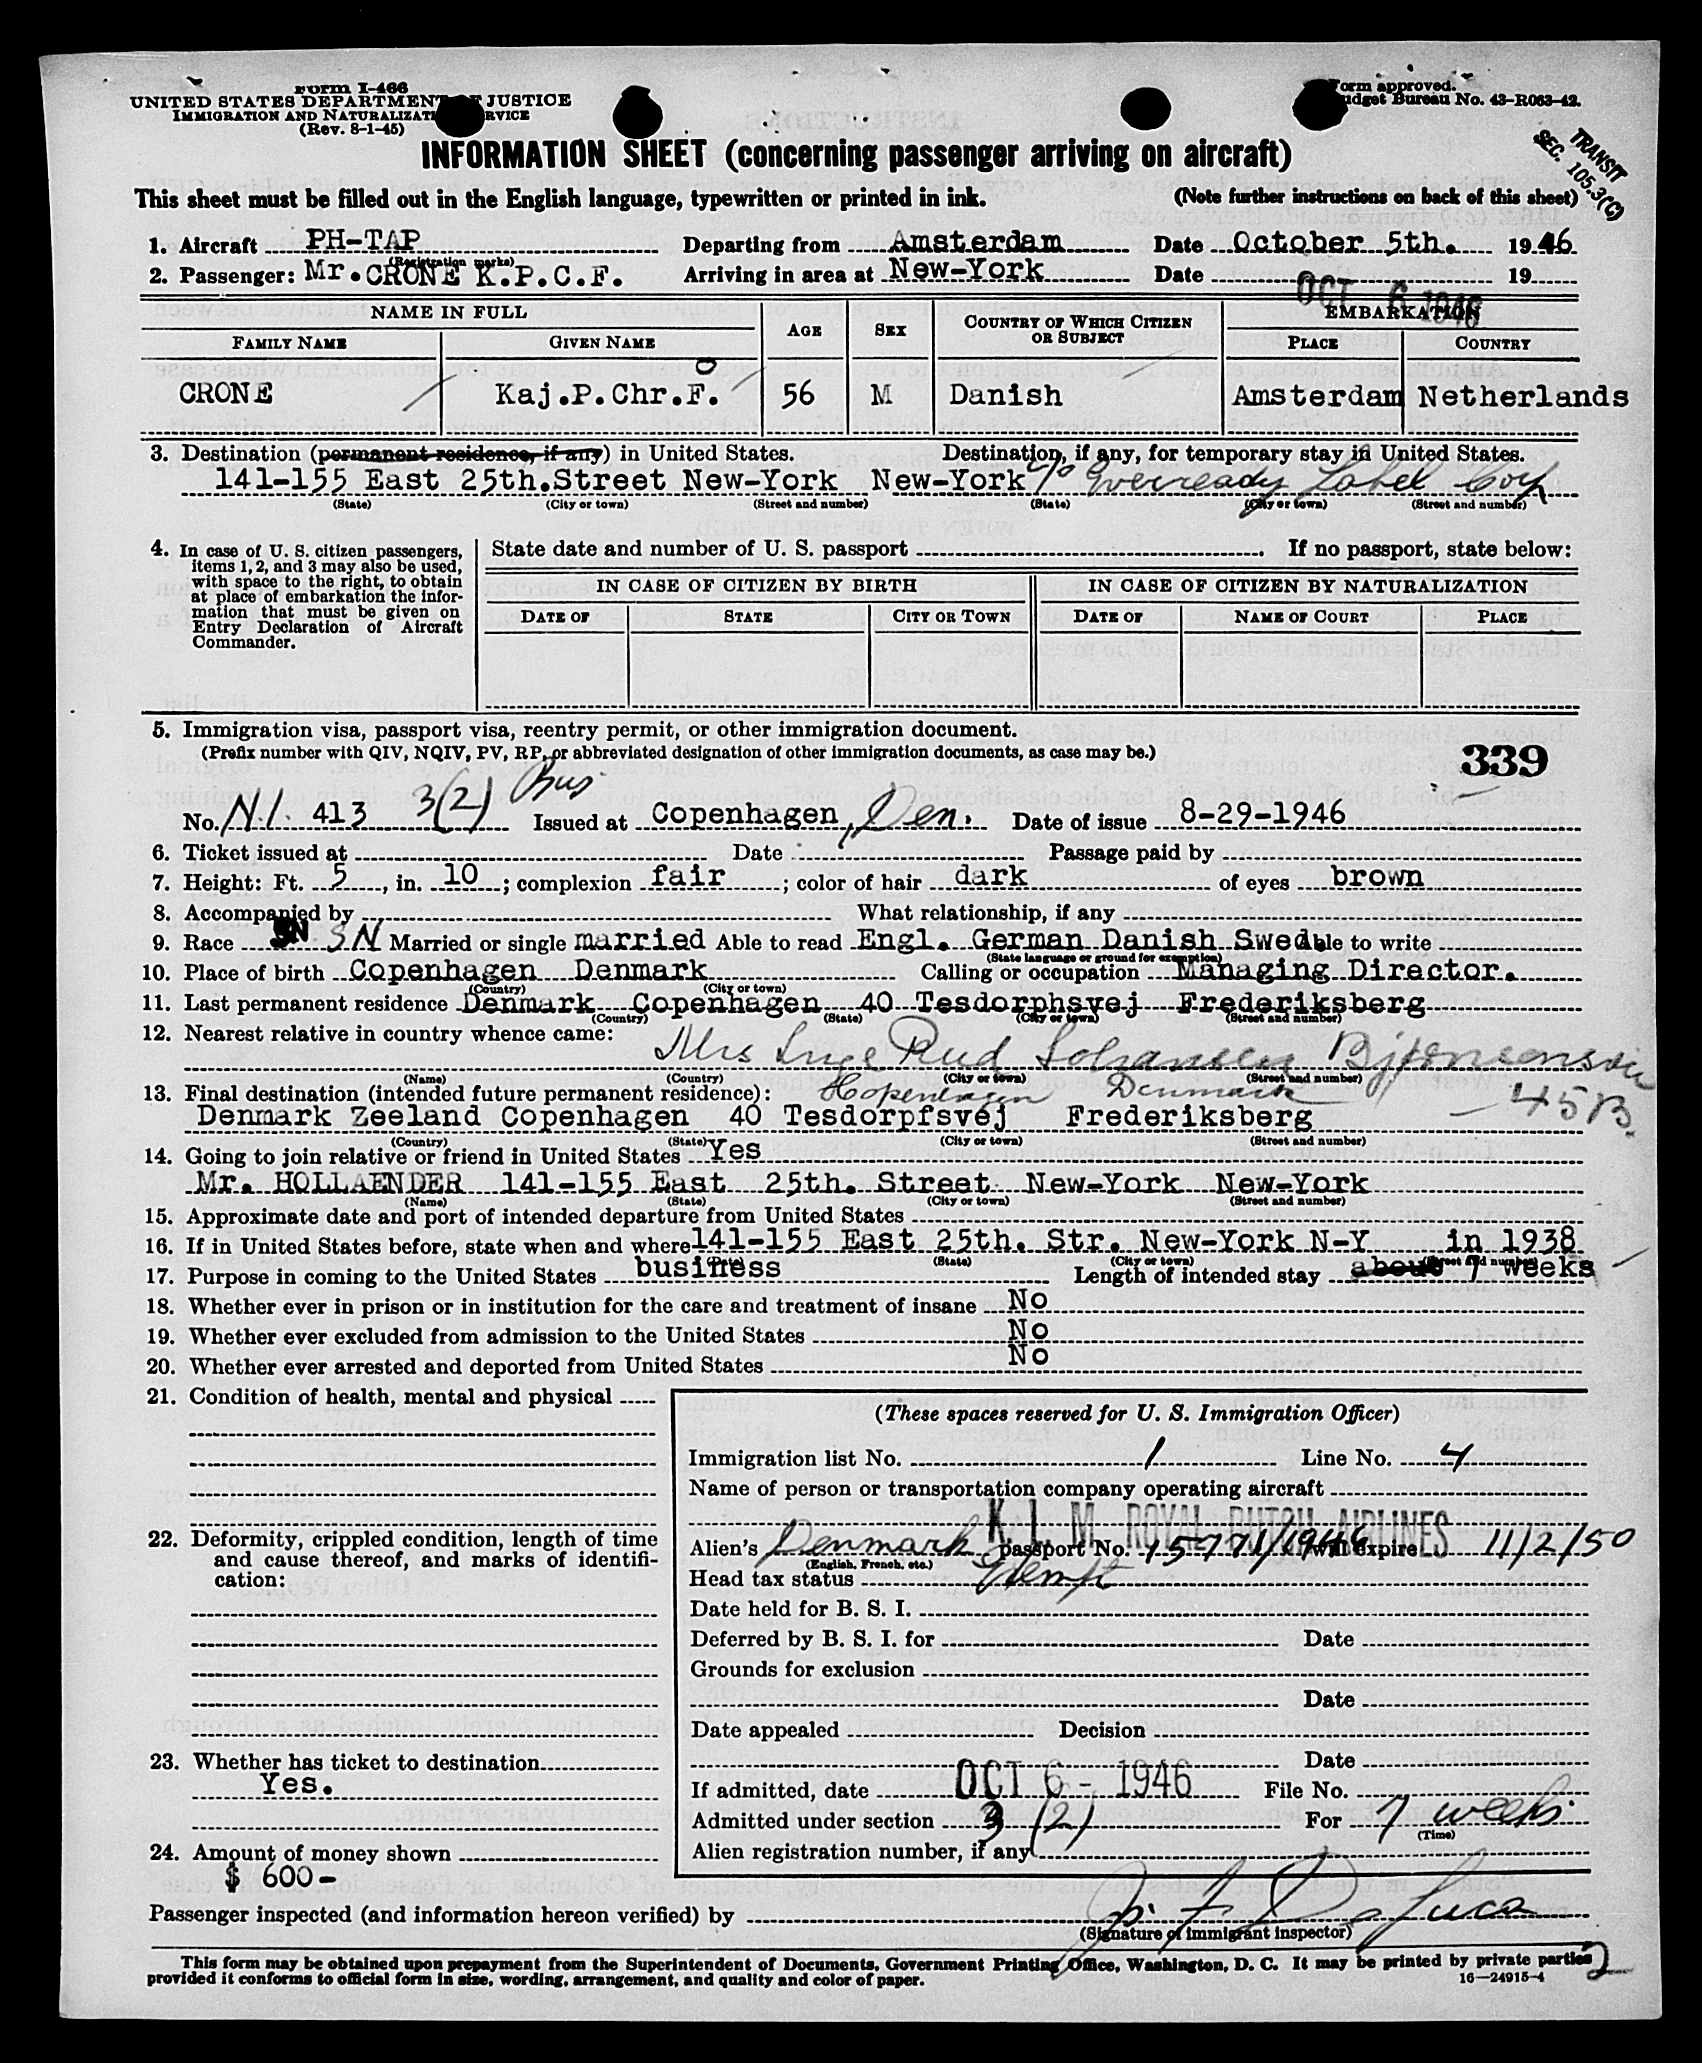 Form I-466
UNITED STATES DEPARTMENT OF JUSTICE
IMMIGRATION AND NATURALIZATION SERVICE
(Rev. 8-1-45)
Form approved.
Budget Bureau No. 43-R063-42.
TRANSIT
SEC. 105.3(C)
INFORMATION SHEET (concerning passenger arriving on aircraft)
This sheet must be filled out in the English language, typewritten or printed in ink. (Note further instructions on back of this sheet)
1. Aircraft PH-TAP Departing from Amsterdam Date October 5th. 1946
(Registration marks)
2. Passenger: Mr. CRONE K.P.C.F. Arriving in area at New-York Date OCT 6 1946 19
NAME IN FULL AGE SEX COUNTRY OF WHICH CITIZEN OR SUBJECT EMBARKATION
FAMILY NAME GIVEN NAME PLACE COUNTRY
CRONE Kaj.P.Chr.F. O 56 M Danish Amsterdam Netherlands
3. Destination (permanent residence, if any) in United States. Destination, if any, for temporary stay in United States.
141-155 East 25th.Street New-York New-York c/o Eveready Label Corp
(State) (City or town) (Street and number) (State) (City or town) (Street and number)
4. In case of U. S. citizen passengers, items 1, 2, and 3 may also be used, with space to the right, to obtain at place of embarkation the information that must be given on Entry Declaration of Aircraft Commander.
State date and number of U. S. passport . If no passport, state below:
IN CASE OF CITIZEN BY BIRTH IN CASE OF CITIZEN BY NATURALIZATION
DATE OF STATE CITY OR TOWN DATE OF NAME OF COURT PLACE
5. Immigration visa, passport visa, reentry permit, or other immigration document.
(Prefix number with QIV, NQIV, PV, RP, or abbreviated designation of other immigration documents, as case may be.)
339
No. N.I. 413 3(2) Bus Issued at Copenhagen, Den. Date of issue 8-29-1946
6. Ticket issued at Date Passage paid by
7. Height: Ft. 5, in. 10; complexion fair; color of hair dark of eyes brown
8. Accompanied by What relationship, if any
9. Race SN Married or single married Able to read Engl. German Danish Swed Able to write
(State language or ground for exemption)
10. Place of birth Copenhagen Denmark Calling or occupation Managing Director.
(Country) (City or town)
11. Last permanent residence Denmark Copenhagen 40 Tesdorphsvej Frederiksberg
(Country) (State) (City or town) (Street and number)
12. Nearest relative in country whence came:
Mrs Inge Rud Johansen
(Name) (Country) (City or town) (Street and number)
Kopenhagen Denmark 45B.
13. Final destination (intended future permanent residence):
Denmark Zeeland Copenhagen 40 Tesdorpfsvej Frederiksberg
(Country) (State) (City or town) (Street and number)
14. Going to join relative or friend in United States Yes
Mr. HOLLAENDER 141-155 East 25th. Street New-York New-York
(Name) (State) (City or town) (Street and number)
15. Approximate date and port of intended departure from United States
16. If in United States before, state when and where 141-155 East 25th. Str. New-York N-Y in 1938
(State) (City or town) (Street and number)
17. Purpose in coming to the United States business Length of intended stay about 7 weeks
18. Whether ever in prison or in institution for the care and treatment of insane No
19. Whether ever excluded from admission to the United States No
20. Whether ever arrested and deported from United States No
21. Condition of health, mental and physical
22. Deformity, crippled condition, length of time and cause thereof, and marks of identification:
23. Whether has ticket to destination
Yes.
24. Amount of money shown
$ 600-
(These spaces reserved for U. S. Immigration Officer)
Immigration list No. 1 Line No. 4
Name of person or transportation company operating aircraft
K. L. M. ROYAL DUTCH AIRLINES
Alien's Denmark passport No. 15771/1946 will expire 11/2/50
(English, French, etc.)
Head tax status Exempt
Date held for B. S. I.
Deferred by B. S. I. for Date
Grounds for exclusion
Date
Date appealed Decision
Date
If admitted, date OCT 6 - 1946 File No.
Admitted under section 3 (2) For 7 weeks.
(Time)
Alien registration number, if any
Passenger inspected (and information hereon verified) by
(Signature of immigrant inspector)
This form may be obtained upon prepayment from the Superintendent of Documents, Government Printing Office, Washington, D. C. It may be printed by private parties
provided it conforms to official form in size, wording, arrangement, and quality and color of paper.
16—24915-4
2